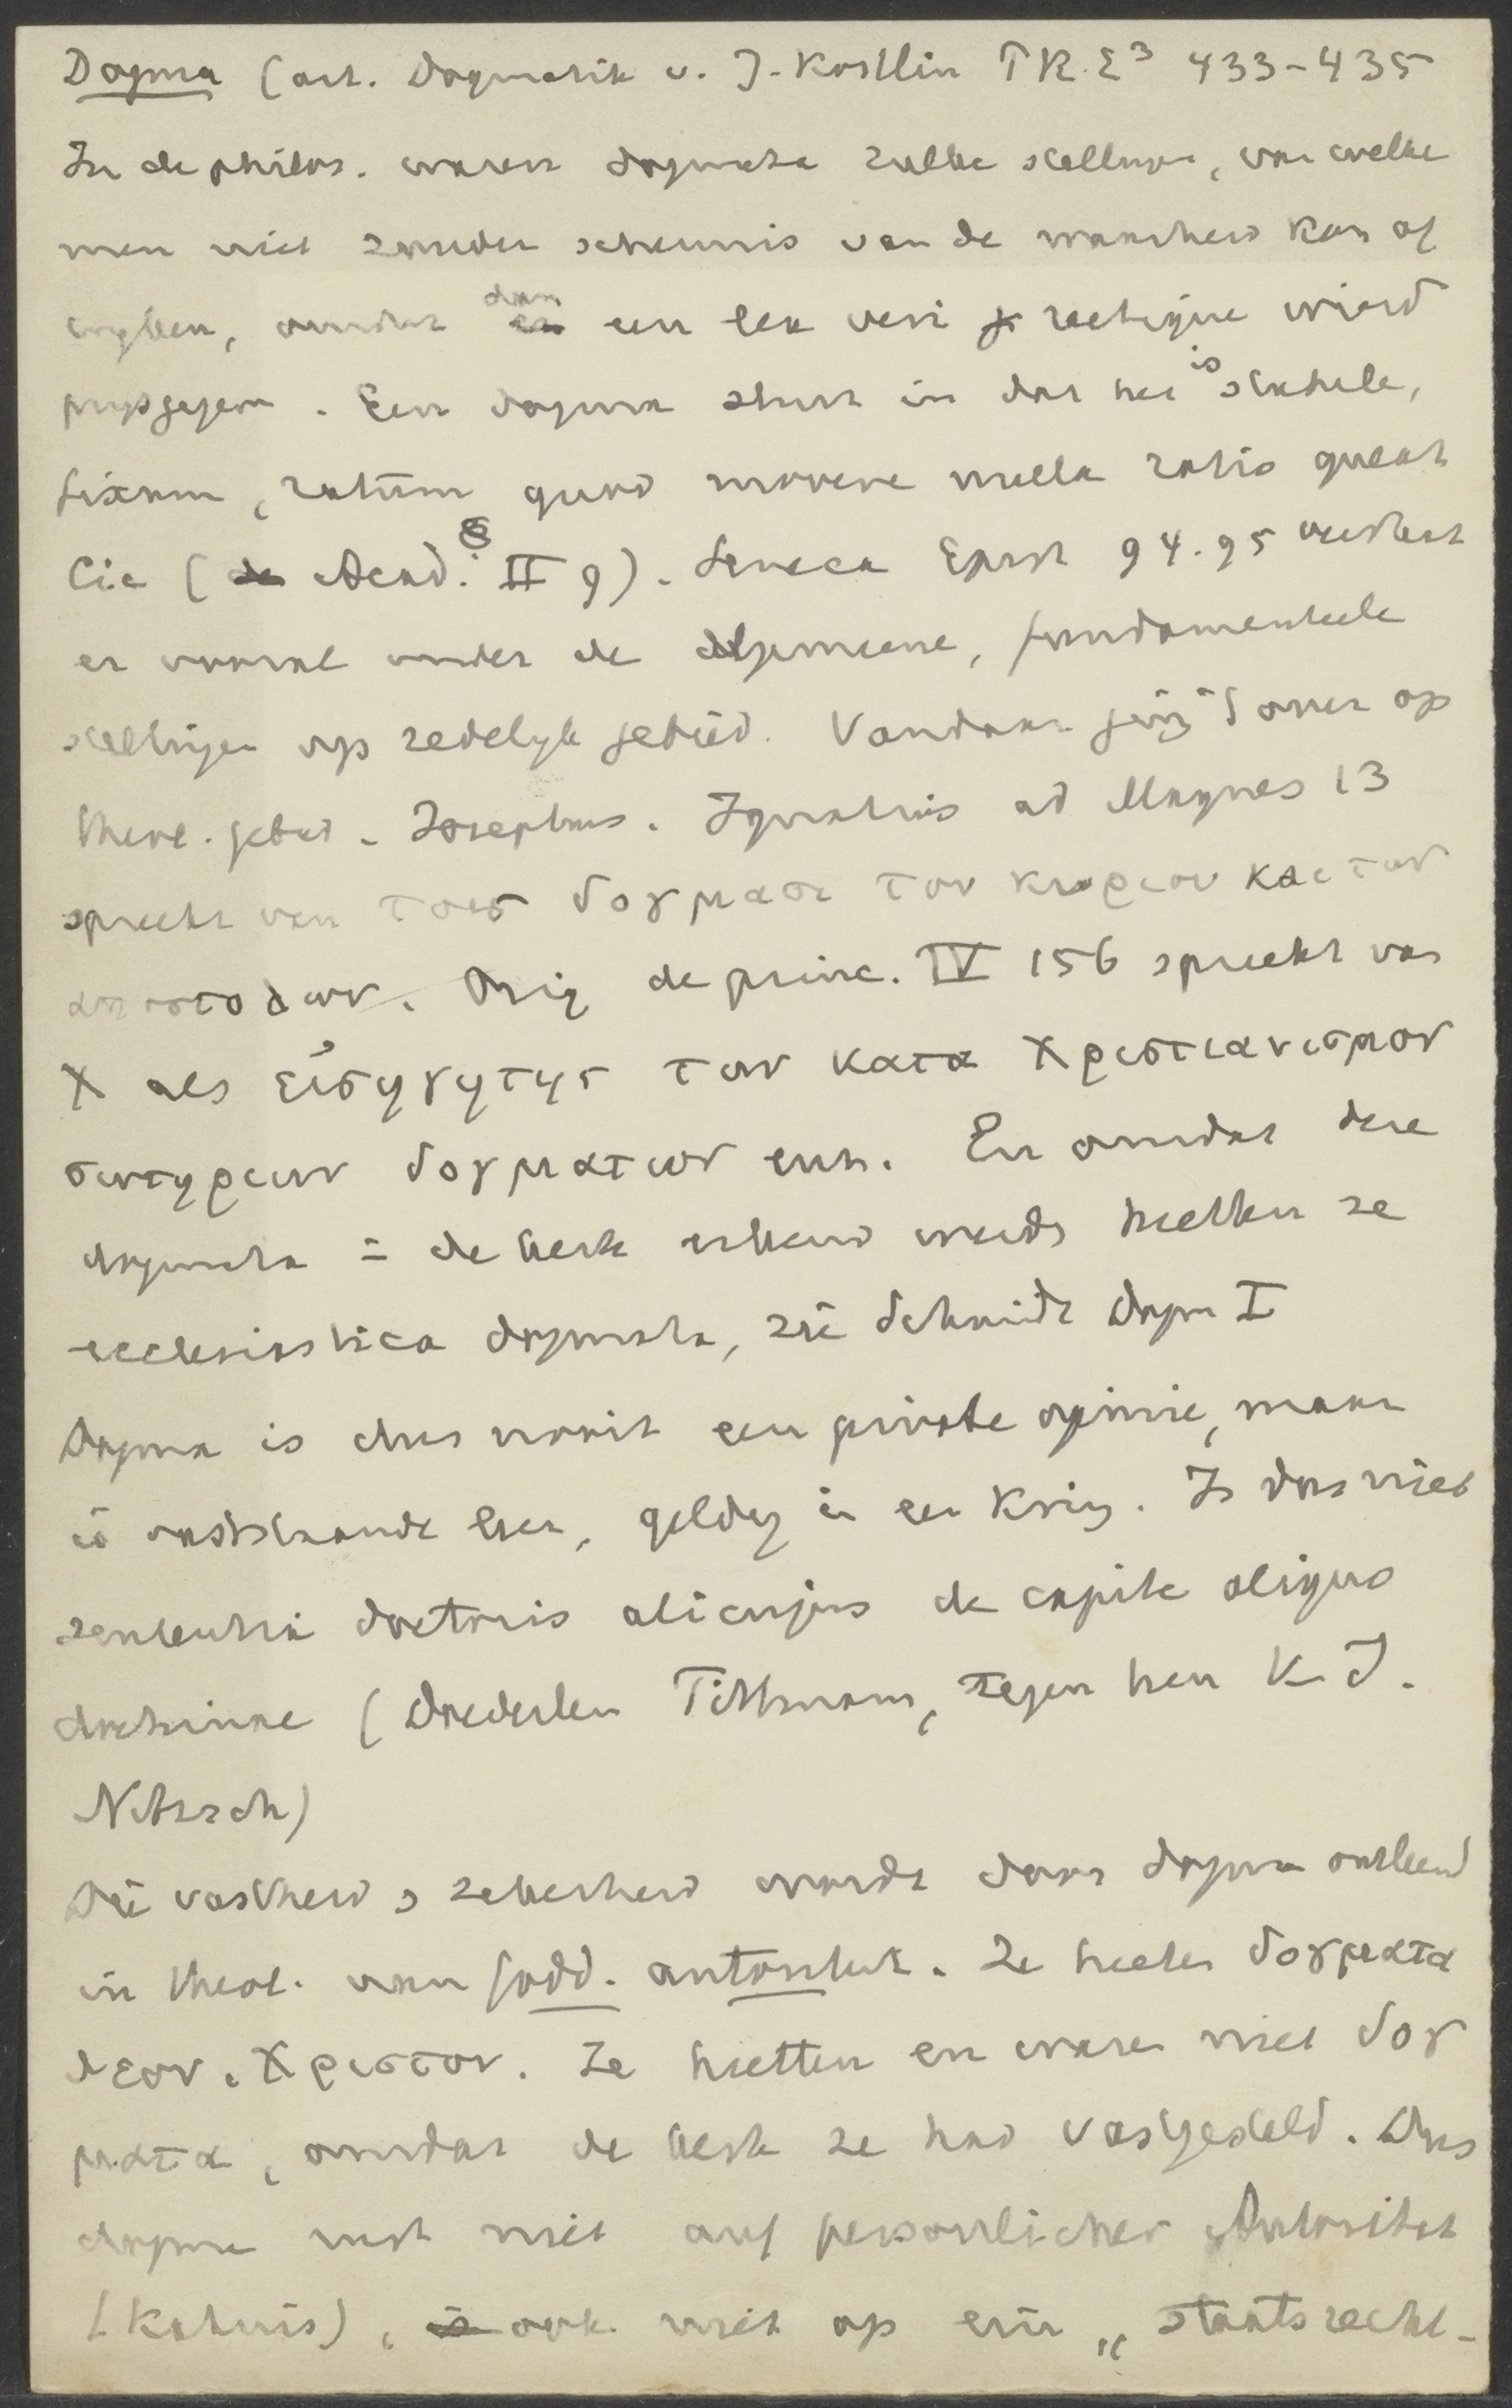 Dogma (art. Dogmatik v. J. Kostlin PRE³ 433-435
In de philos. waren dogmata zulke stellingen, van welke
men niet zonder schennis van de waarheid kan af
wyken, omdat dan een lex veri rectique wierd
prysgegeven. Een dogma sluit in dat het is stabile,
fixum, ratum quod movere nulla ratio queat
Cic (Acad. II 9). Seneca Epist 94.95 verstaat
er vooral onder de algemeene, fundamenteele
stellingen op zedelyk gebied. Vandaar ging 't over op
theol. gebied. Josephus. Ignatius ad Magnes 13
spreekt van τοις δογμασι του κυριου και των
αποστολων. Orig de princ. IV 156 spreekt van
X als εἰσηγητης των κατα Χριστιανισμον
σωτηριων δογματων enz. En omdat deze
dogmata = de kerk erkend werden heetten ze
ecclesiastica dogmata, zie Schmidt Dogm I
Dogma is dus nooit een private opinie, maar
is vaststaande leer, geldig in een kring. Is dus niet
sententia doctoris alicujus de capite aliquo
doctrinae (Doederlein Tittmann, tegen hen K. J.
Nitzsch)
Die vastheid, zekerheid werd door dogma ontleend
in theol. aan godd. autoriteit. Ze heeten δογματα
θεου. Χριστου. Ze heetten en waren niet δογ
ματα, omdat de kerk ze had vastgesteld. Dus
dogma rust niet auf personlicher Autoritat
(Kahnis), ook niet op ein „staatsrecht-